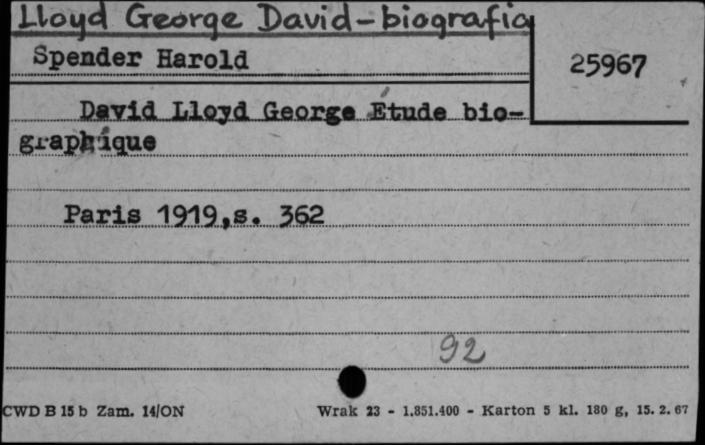 Lloyd George David-biografia
Spender Harold
25967
David Lloyd George Étude bio-
graphique
Paris 1919,s. 362
92
CWD B 15 b Zam. 14/ON
Wrak 23 - 1.851.400 - Karton 5 kl. 180 g, 15. 2. 67